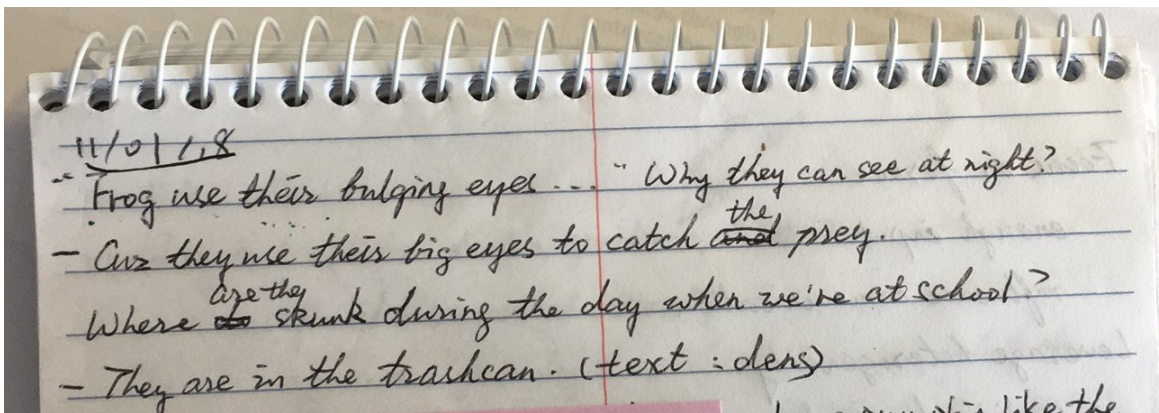 11/01/18
"Frog use their bulging eyes..." Why they can see at night?
- Cuz they use their big eyes to catch the prey.
Where are the skunk during the day when we're at school?
- They are in the trashcan. (text: dens)
like the